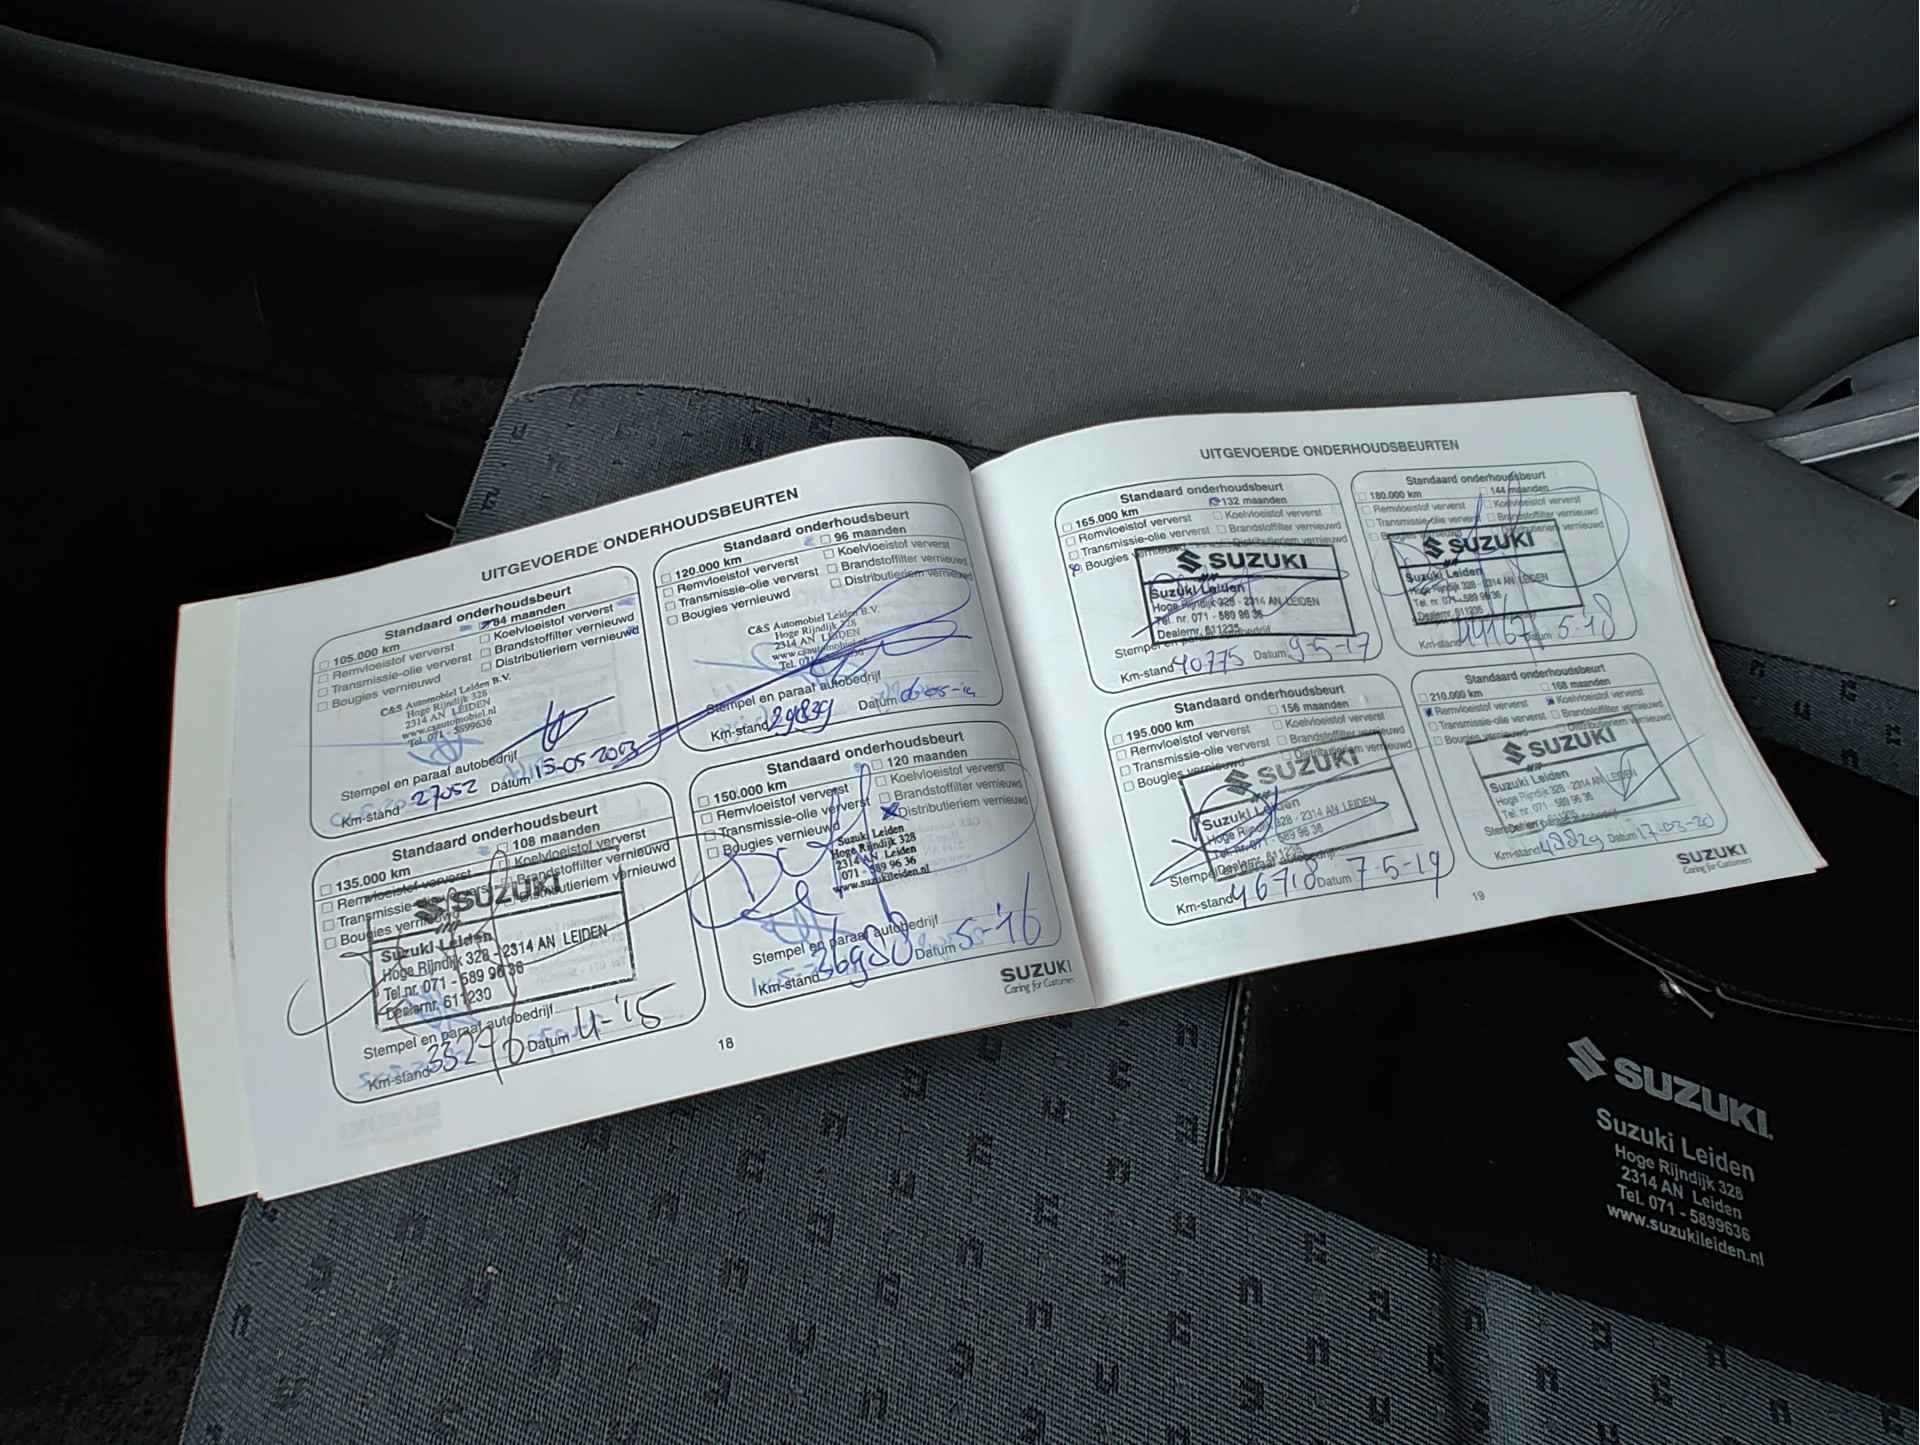 UITGEVOERDE ONDERHOUDSBEURTEN
Standaard onderhoudsbeurt
105.000 km 84 maanden
Remvloeistof ververst Koelvloeistof ververst
Transmissie-olie ververst Brandstoffilter vernieuwd
Bougies vernieuwd Distributieriem vernieuwd
C&S Automobiel Leiden B.V.
Hoge Rijndijk 328
2314 AN LEIDEN
www.csautomobiel.nl
Tel. 071 - 5899636
Stempel en paraaf autobedrijf
Km-stand 27052 Datum 15-05-2013
Standaard onderhoudsbeurt
120.000 km 96 maanden
Remvloeistof ververst Koelvloeistof ververst
Transmissie-olie ververst Brandstoffilter vernieuwd
Bougies vernieuwd Distributieriem vernieuwd
C&S Automobiel Leiden B.V.
Hoge Rijndijk 328
2314 AN LEIDEN
Stempel en paraaf autobedrijf
Km-stand 29839 Datum 06-05-14
Standaard onderhoudsbeurt
135.000 km 108 maanden
Remvloeistof ververst Koelvloeistof ververst
Transmissie-olie ververst Brandstoffilter vernieuwd
Bougies vernieuwd Distributieriem vernieuwd
SUZUKI
Suzuki Leiden
Hoge Rijndijk 328 - 2314 AN LEIDEN
Tel.nr. 071 - 589 96 36
Dealernr. 611230
Stempel en paraaf autobedrijf
Km-stand Datum 4-'15
Standaard onderhoudsbeurt
150.000 km 120 maanden
Remvloeistof ververst Koelvloeistof ververst
Transmissie-olie ververst Brandstoffilter vernieuwd
Bougies vernieuwd Distributieriem vernieuwd
Suzuki Leiden
Hoge Rijndijk 328
2314 AN Leiden
071 - 589 96 36
www.suzukileiden.nl
Stempel en paraaf autobedrijf
Km-stand 36980 Datum 5-'16
SUZUKI
Caring for Customers
18
UITGEVOERDE ONDERHOUDSBEURTEN
Standaard onderhoudsbeurt
165.000 km 132 maanden
Remvloeistof ververst Koelvloeistof ververst
Transmissie-olie ververst Brandstoffilter vernieuwd
Bougies vernieuwd
SUZUKI
Suzuki Leiden
Hoge Rijndijk 328 - 2314 AN LEIDEN
Tel. nr. 071 - 589 96 36
Dealernr. 611235
Km-stand 40775 Datum 9-5-17
Standaard onderhoudsbeurt
180.000 km 144 maanden
Remvloeistof ververst Koelvloeistof ververst
Transmissie-olie ververst Brandstoffilter vernieuwd
Bougies vernieuwd Distributieriem vernieuwd
SUZUKI
Suzuki Leiden
Hoge Rijndijk 328 - 2314 AN LEIDEN
Tel. nr. 071 - 589 96 36
Dealernr. 611235
Km-stand 44167 Datum 5-18
Standaard onderhoudsbeurt
195.000 km 156 maanden
Remvloeistof ververst Koelvloeistof ververst
Transmissie-olie ververst Brandstoffilter vernieuwd
Bougies vernieuwd Distributieriem vernieuwd
SUZUKI
Suzuki Leiden
Hoge Rijndijk 328 - 2314 AN LEIDEN
Tel.nr. 071 - 589 96 36
Dealernr. 611235
Km-stand 46718 Datum 7-5-19
Standaard onderhoudsbeurt
210.000 km 168 maanden
Remvloeistof ververst Koelvloeistof ververst
Transmissie-olie ververst Brandstoffilter vernieuwd
Bougies vernieuwd Distributieriem vernieuwd
SUZUKI
Suzuki Leiden
Hoge Rijndijk 328 - 2314 AN LEIDEN
Tel.nr. 071 - 589 96 36
Km-stand 48829 Datum 17-03-20
SUZUKI
Caring for Customers
19
SUZUKI
Suzuki Leiden
Hoge Rijndijk 328
2314 AN Leiden
Tel. 071 - 5899636
www.suzukileiden.nl